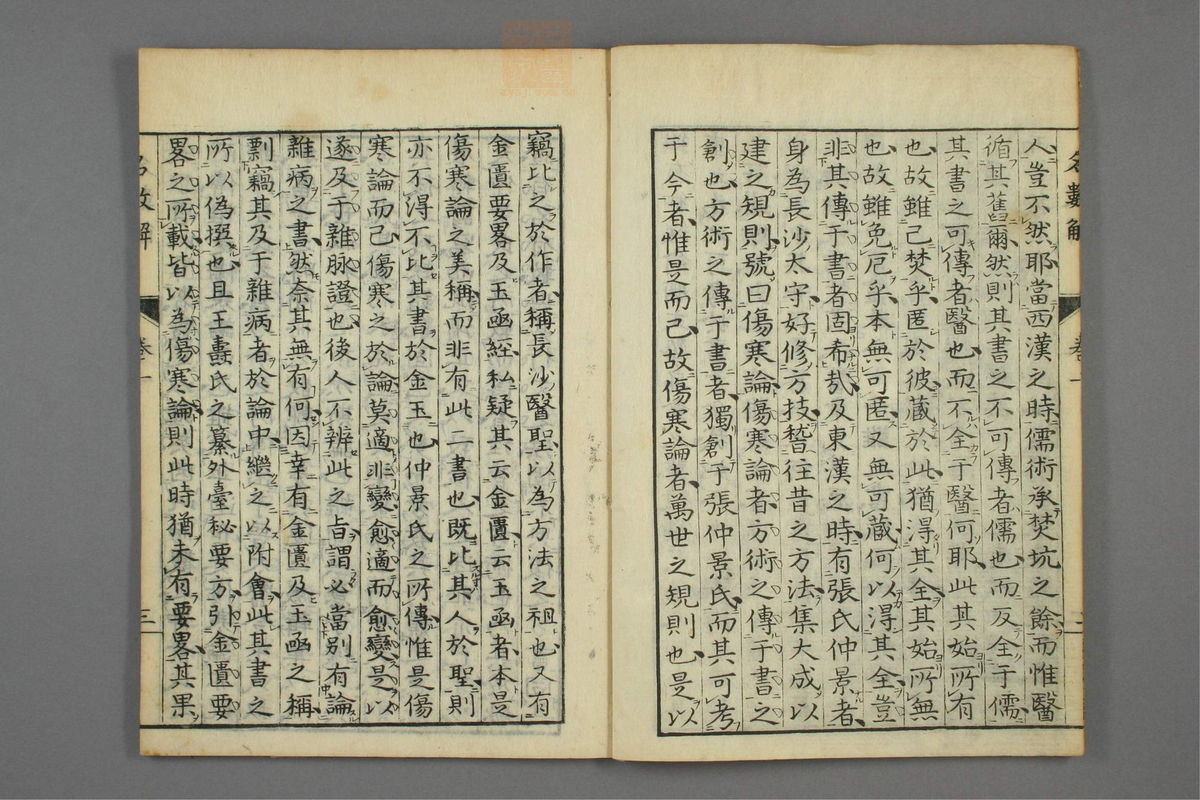 名數解 卷一 二
人豈不然耶當西漢之時儒術承焚坑之餘而惟醫
循其舊爾然則其書之不可傳者儒也而反全于儒
其書之可傳者醫也而不全于醫何耶此其始所有
也故雖已焚乎匿於彼藏於此猶得其全其始所無
也故雖免厄乎本無可匿又無可藏何以得其全豈
非其傳于書者固希哉及東漢之時有張氏仲景者
身為長沙太守好修方技稽往昔之方法集大成以
建之規則號曰傷寒論傷寒論者方術之傳于書之
創也方術之傳于書者獨創于張仲景氏而其可考
于今者惟是而已故傷寒論者萬世之規則也是以
竊比之於作者稱長沙醫聖以為方法之祖也又有
金匱要畧及玉函經私疑其云金匱云玉函者本是
傷寒論之美稱而非有此二書也既比其人於聖則
亦不得不比其書於金玉也仲景氏之所傳惟是傷
寒論而已傷寒之於論莫適非變愈適而愈變是以
遂及于雜脉證也後人不辨此之旨謂必當別有論
雜病之書然奈其無有何因幸有金匱及玉函之稱
剽竊其及于雜病者於論中繼之以附會此其書之
所以偽撰也且王燾氏之纂外臺秘要方引金匱要
畧之所載皆以為傷寒論則此時猶未有要畧其果
名數解 卷一 三